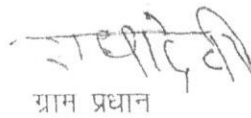 राधादेवी
ग्राम प्रधान